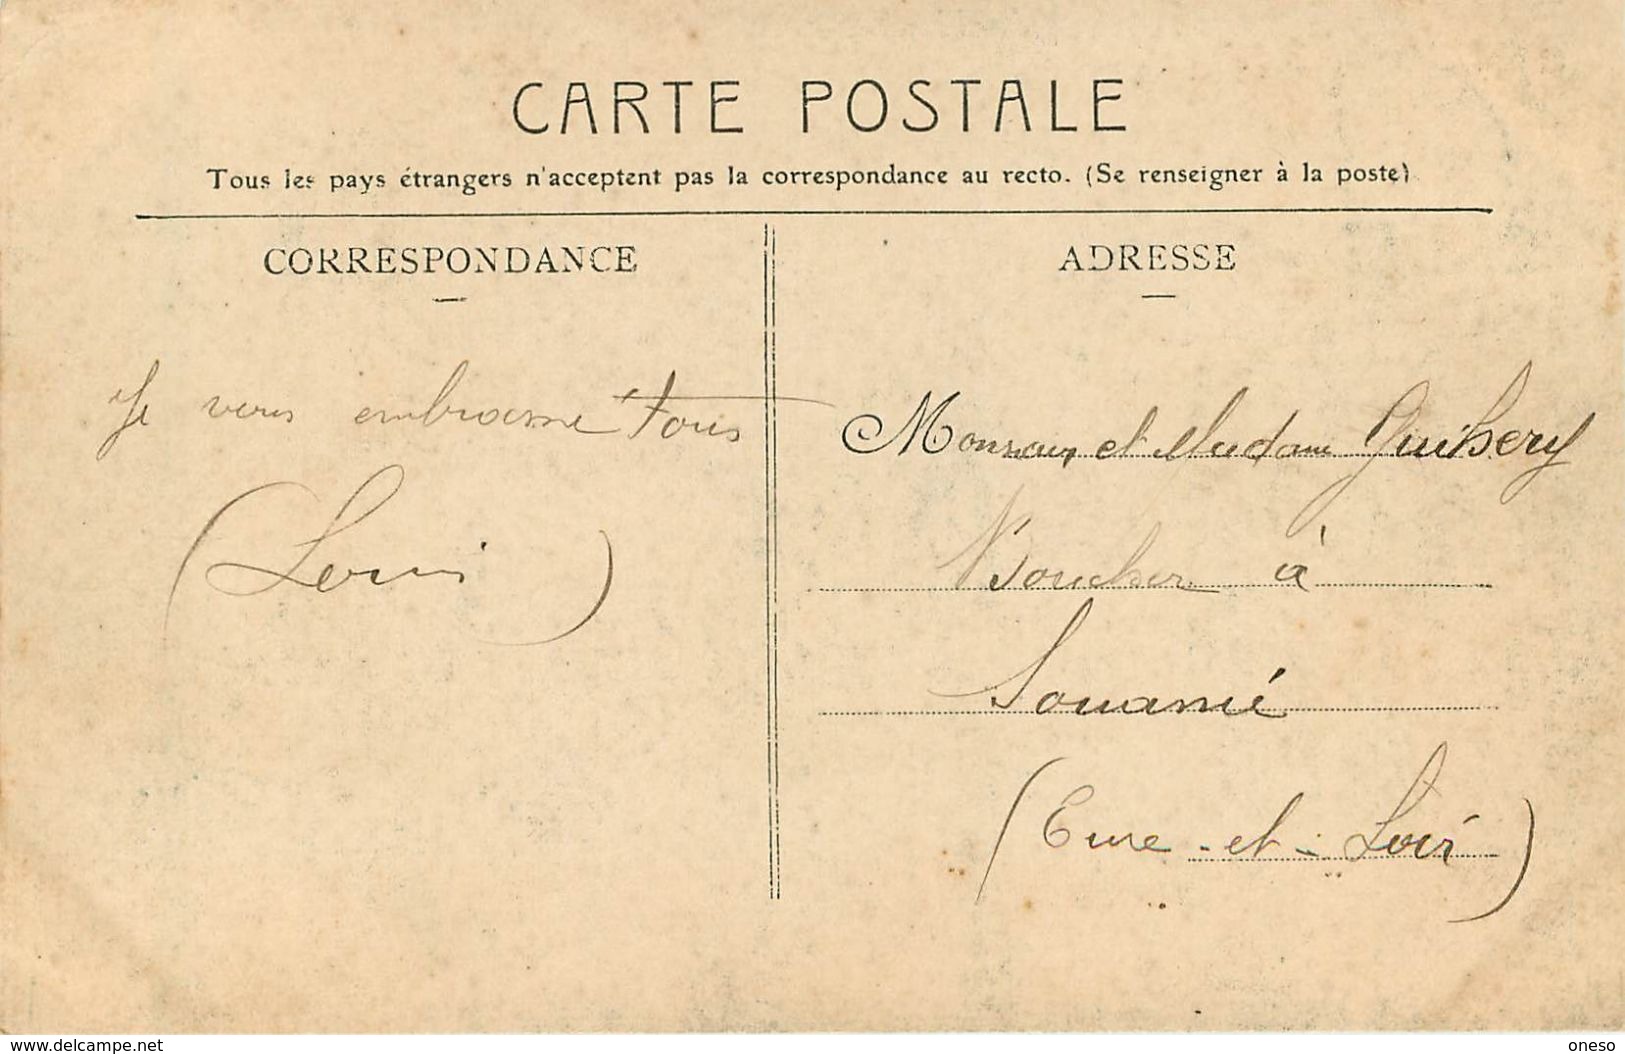 CARTE POSTALE
Tous les pays étrangers n'acceptent pas la correspondance au recto. (Se renseigner à la poste)
CORRESPONDANCE
ADRESSE
Je vous embrasse tous
(Louis)
Monsieur et Madame
Boucher à
(Eure-et-Loir)
delcampe.net
oneso